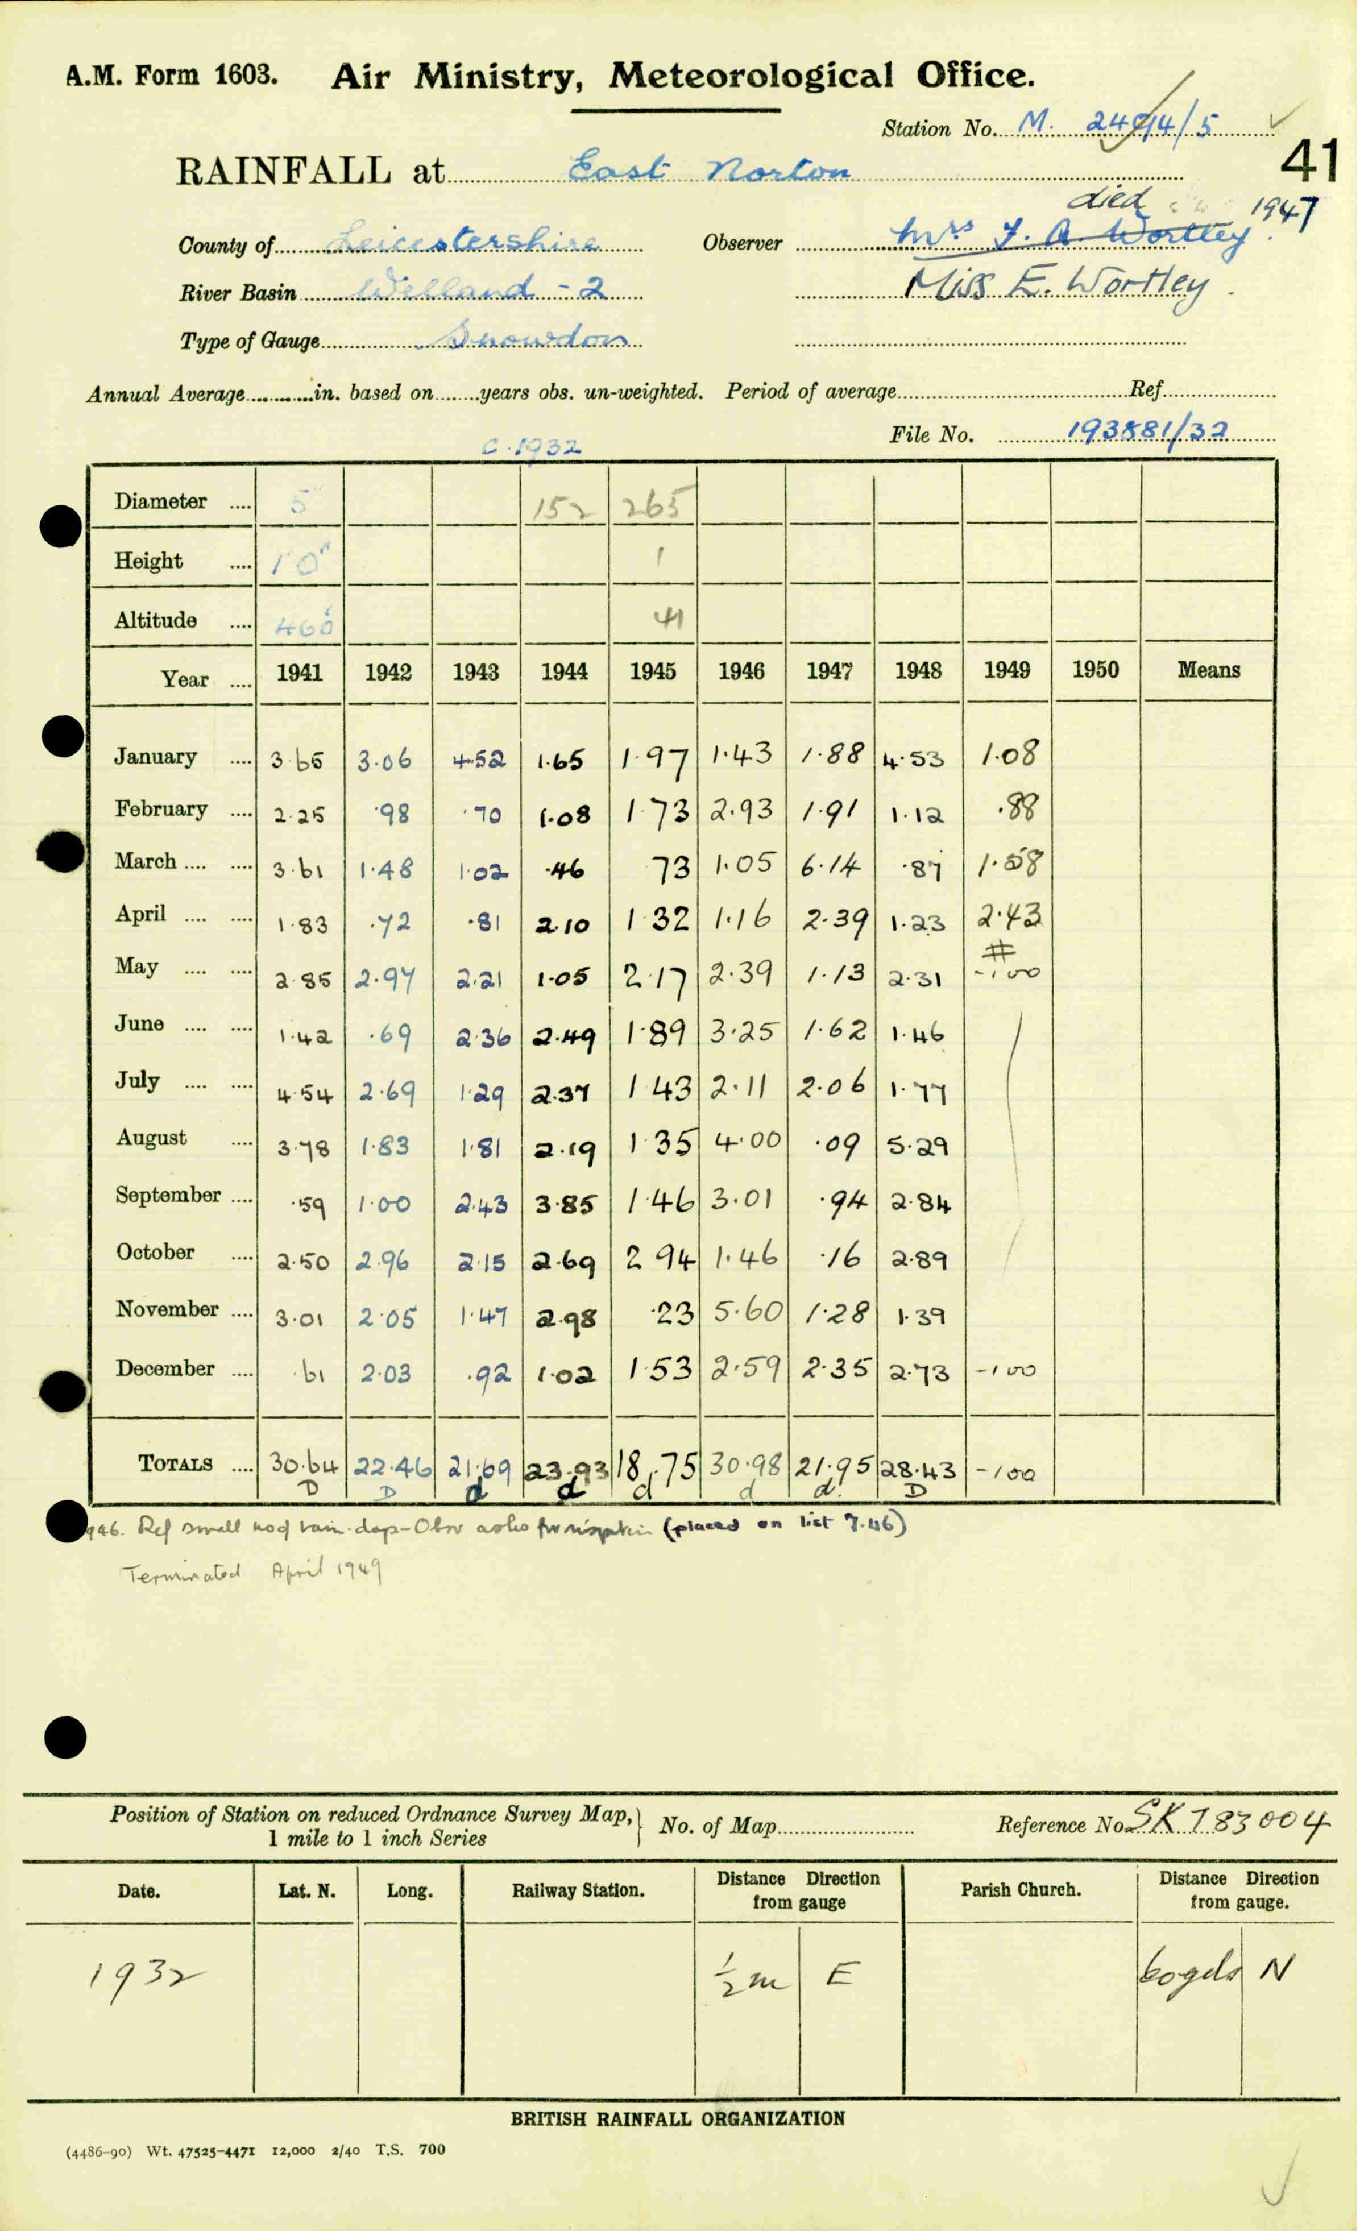 A.M. Form 1603. Air Ministry, Meteorological Office.
Station No. M. 2494/5
41
RAINFALL at East Norton
died 1947
County of Leicestershire Observer Mrs F. A. Wortley
River Basin Welland - 2 Miss E. Wortley
Type of Gauge Snowdon
Annual Average in. based on years obs. un-weighted. Period of average Ref.
File No. 193881/32
C. 1932
Diameter 5" 152 265
Height 1'0" 1
Altitude 460' 41
Year 1941 1942 1943 1944 1945 1946 1947 1948 1949 1950 Means
January 3.65 3.06 4.52 1.65 1.97 1.43 1.88 4.53 1.08
February 2.25 .98 .70 1.08 1.73 2.93 1.91 1.12 .88
March 3.61 1.48 1.02 .46 73 1.05 6.14 .87 1.58
April 1.83 .72 .81 2.10 1 32 1.16 2.39 1.23 2.43
May 2.85 2.97 2.21 1.05 2.17 2.39 1.13 2.31 # -1.00
June 1.42 .69 2.36 2.49 1.89 3.25 1.62 1.46
July 4.54 2.69 1.29 2.37 1 43 2.11 2.06 1.77
August 3.78 1.83 1.81 2.19 1 35 4.00 .09 5.29
September .59 1.00 2.43 3.85 1.46 3.01 .94 2.84
October 2.50 2.96 2.15 2.69 2 94 1.46 .16 2.89
November 3.01 2.05 1.47 2.98 .23 5.60 1.28 1.39
December .61 2.03 .92 1.02 1.53 2.59 2.35 2.73 -1 00
TOTALS 30.64 22.46 21.69 23.93 18.75 30.98 21.95 28.43 -100
D D d d d d d D
1946. Ref small rain (placed on list 7.46)
Terminated April 1949
Position of Station on reduced Ordnance Survey Map, 1 mile to 1 inch Series No. of Map Reference No. SK 783004
Date. Lat. N. Long. Railway Station. Distance Direction from gauge Parish Church. Distance Direction from gauge.
1932 ½ m E 60 yds N
BRITISH RAINFALL ORGANIZATION
(4486-90) Wt. 47525-4471 12,000 2/40 T.S. 700